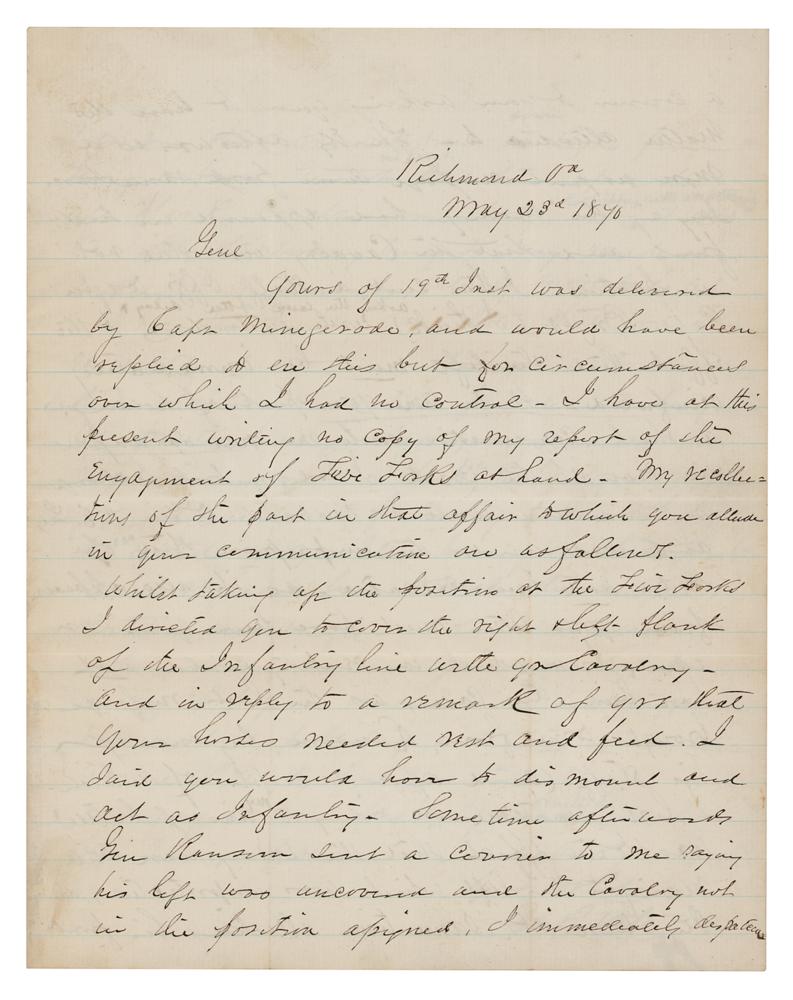 Richmond Va
May 23d 1870
Genl
Yours of 19th Inst was delivered
by Capt Minegerode, and would have been
replied to ere this but for circumstances
over which I had no control - I have at this
present writing no copy of my report of the
Engagement of Five Forks at hand - My recollec=
tions of the part in that affair to which you allude
in your communication are as follows.
Whilst taking up the position at the Five Forks
I directed you to cover the right & left flank
of the Infantry line with yr Cavalry -
and in reply to a remark of yrs that
your horses needed rest and feed. I
said you would have to dismount and
act as Infantry - Sometime afterwards
Gen Ransom sent a courier to me saying
his left was uncovered and the Cavalry not
in the position assigned, I immediately